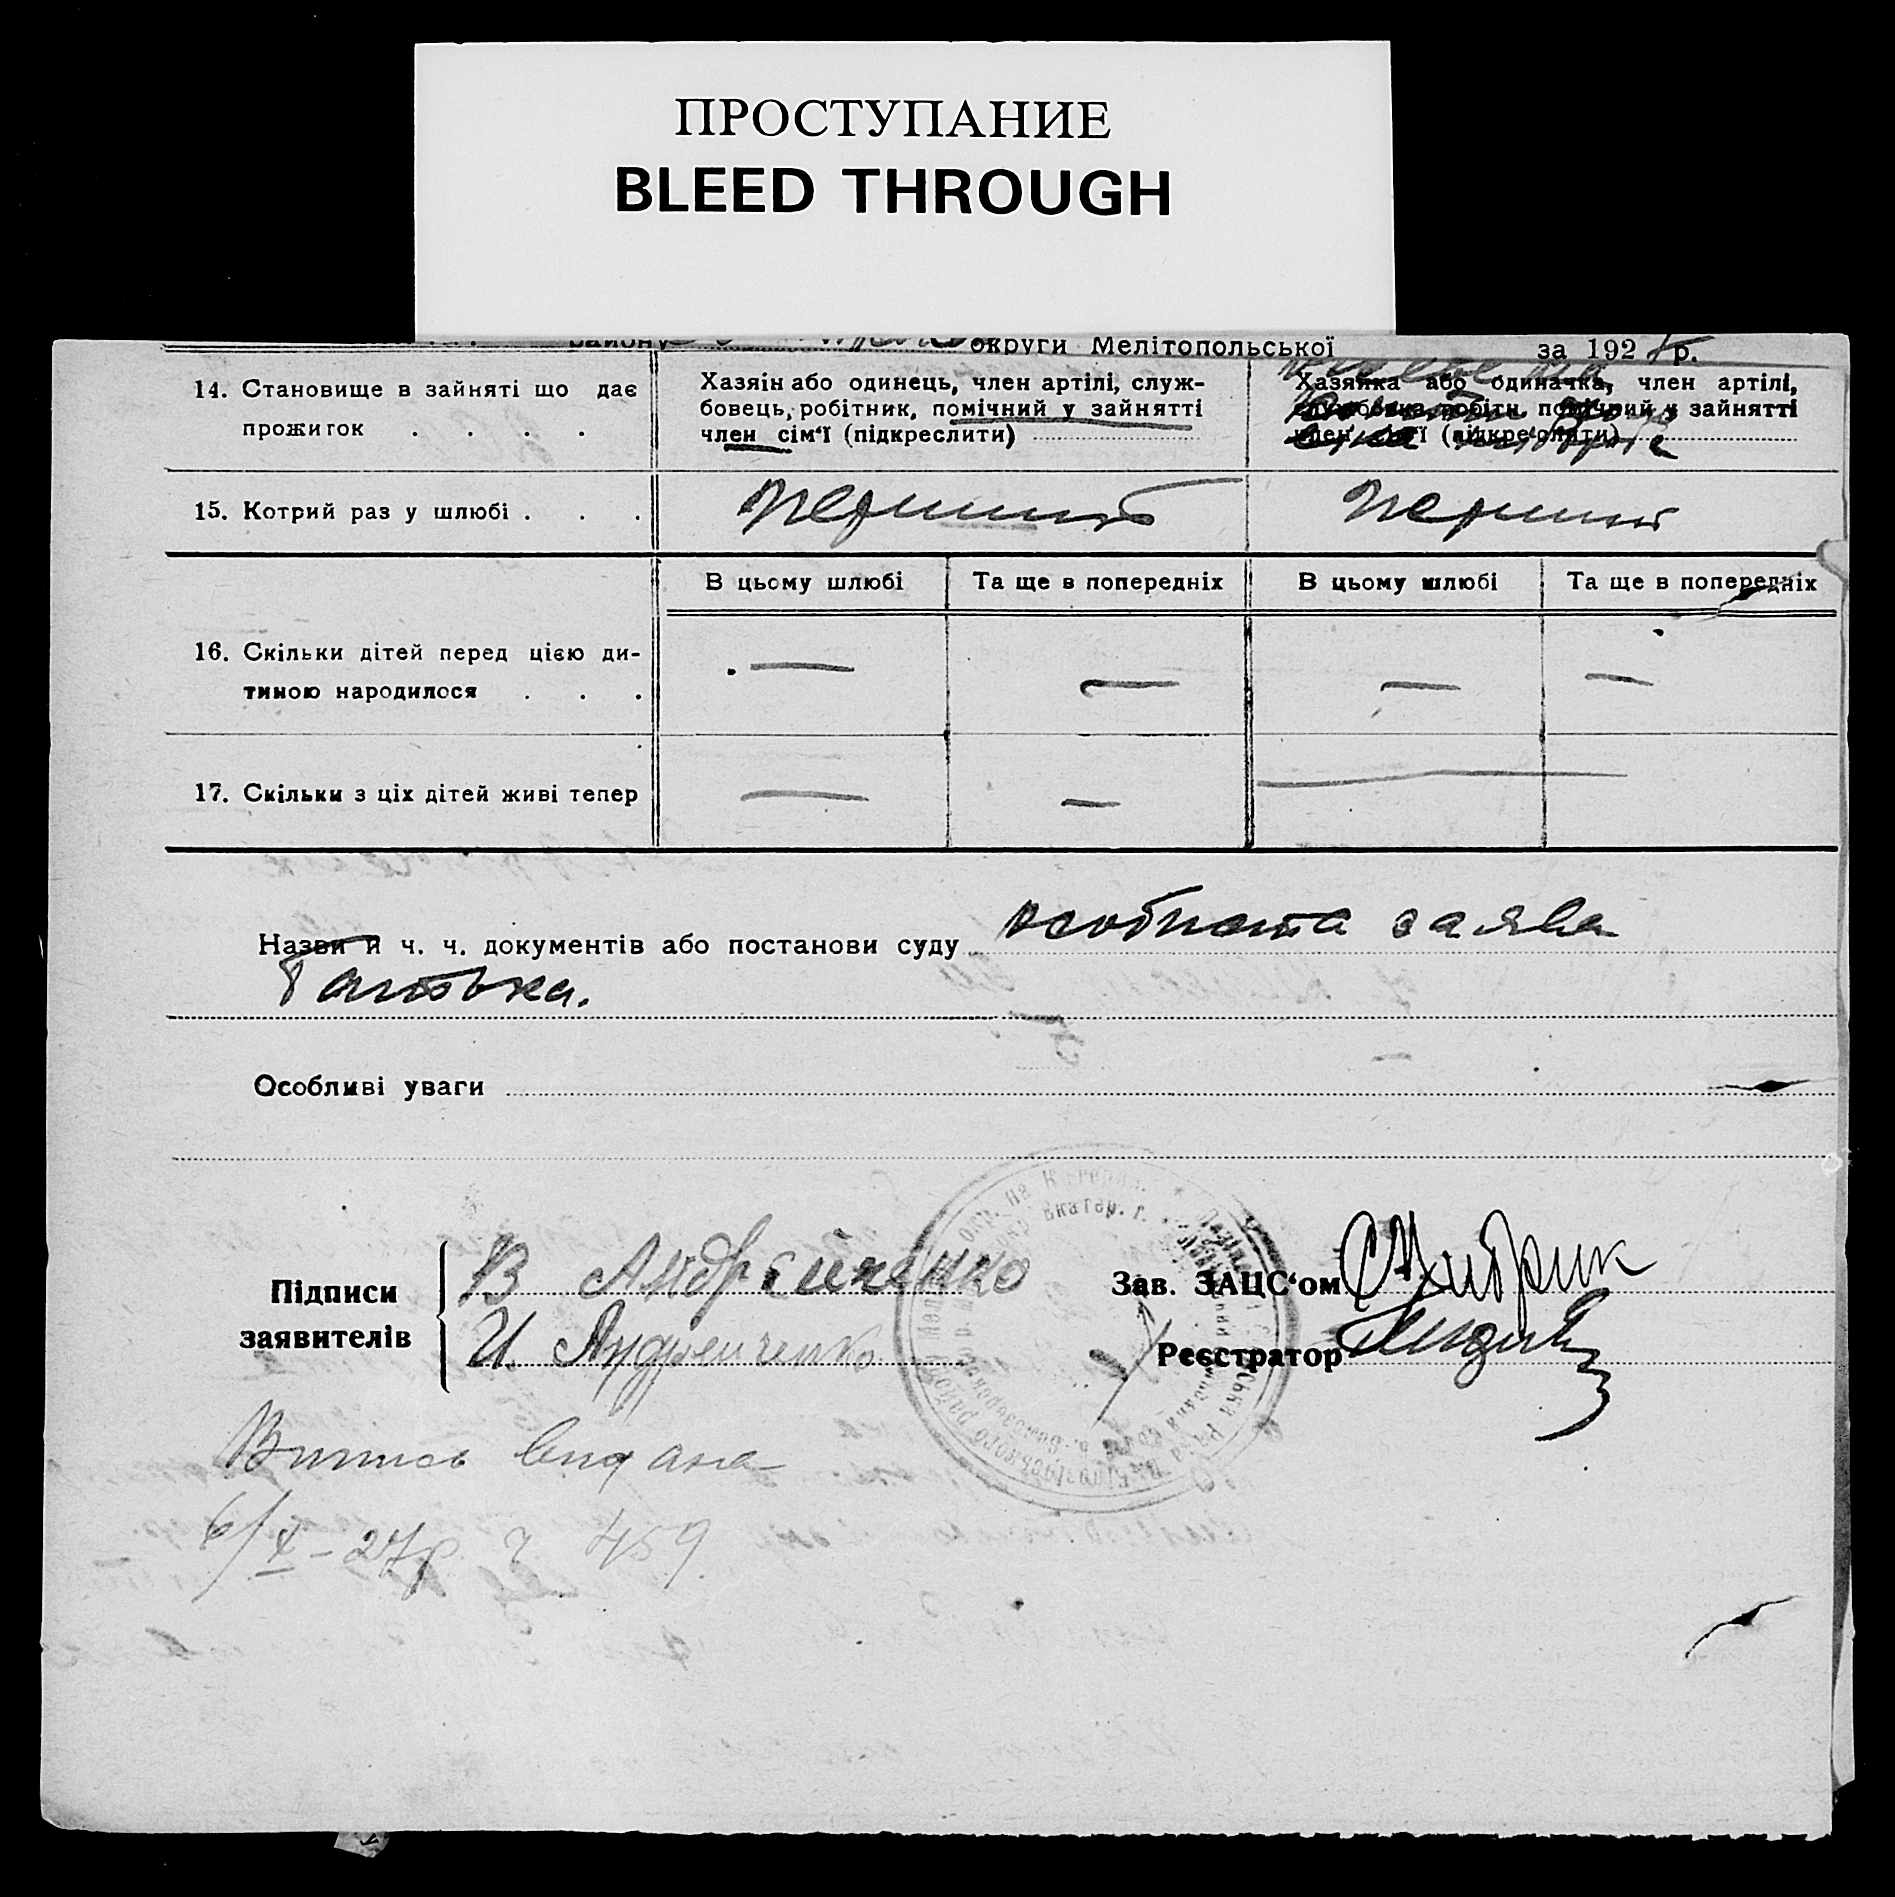 ПРОСТУПАНИЕ
BLEED THROUGH
району округи Мелітопольської за 192 р.
14. Становище в зайняті що дає прожиток . . . .
Хазяїн або одинець, член артілі, служ-
бовець, робітник, помічний у зайнятті
член сім‘ї (підкреслити)
Хазяйка або одиначка, член артілі,
службовка, робітн. помічний у зайнятті
член сім‘ї (підкреслити)
15. Котрий раз у шлюбі . . .
перший
перший
В цьому шлюбі
Та ще в попередніх
В цьому шлюбі
Та ще в попередніх
16. Скільки дітей перед цією ди-
тиною народилося . . .
—
—
—
—
17. Скільки з ціх дітей живі тепер
—
—
—
Назви й ч. ч. документів або постанови суду особиста заява
батька.
Особливі уваги
Підписи
заявителів
В Андрейченко
И. Андрейченко
Зав. ЗАЦС‘ом
Реєстратор
Випись видана
6/X – 27р. ч 459